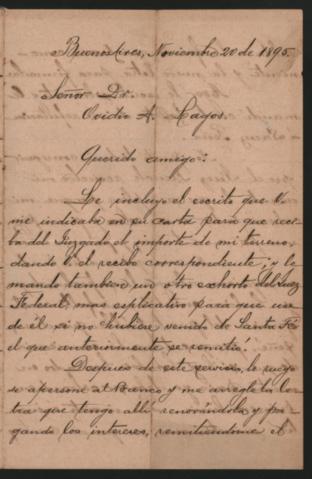 Buenos Aires, Noviembre 20 de 1895.
Señor Dr.
Ovidio A. Lagos.
Querido amigo:
Le incluyo el escrito que V.
me indicaba en su carta para que reci-
ba del Juzgado el importe de mi terreno,
dando V. el recibo correspondiente; y le
mando tambien un otro exhorto del Juez
Federal, mas esplicativo para que use
de él si no hubiere venido de Santa Fé
el que anteriormente se remitió.
Despues de este servicio, le ruego
se apersone al Banco y me arregle la le-
tra que tengo allí renovándola y pa-
gando los intereses, remitiendome el